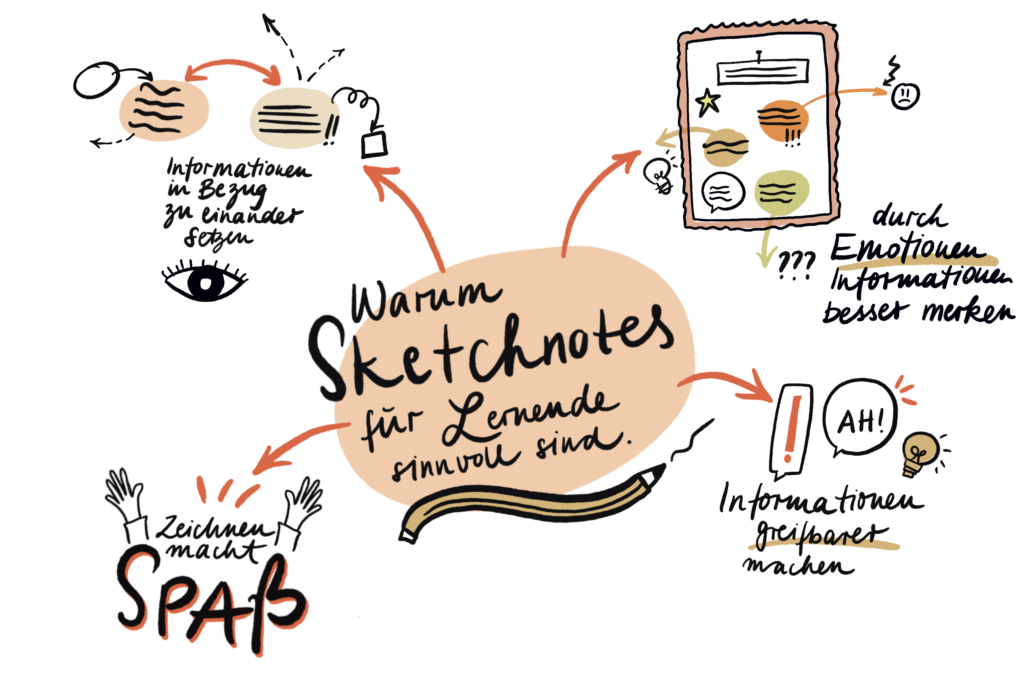 Informationen
in Bezug
zu einander
setzen
durch
Emotionen
Informationen
besser merken
???
!!
!!!
Warum
Sketchnotes
für Lernende
sinnvoll sind.
!
AH!
Informationen
greifbarer
machen
Zeichnen
macht
SPAß